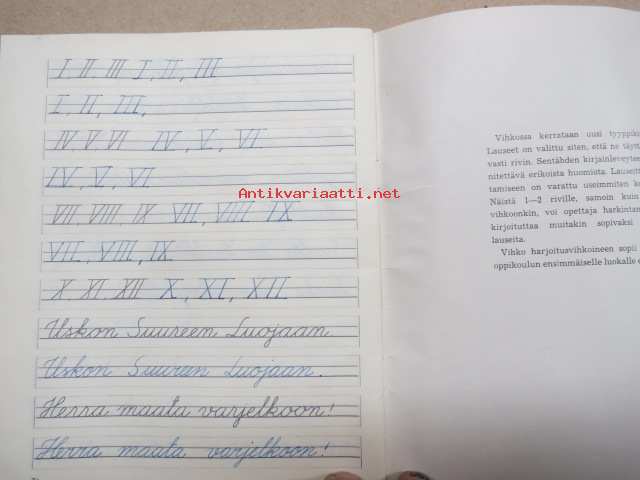 I. II. III I, II, III
I, II, III,
IV. V. VI IV, V, VI.
IV, V, VI.
Antikvariaatti.net
VII, VIII, IX VII, VIII IX
VII, VIII, IX.
X. XI. XII X, XI, XII.
Uskon Suureen Luojaan
Uskon Suureen Luojaan.
Herra maata varjelkoon!
Herra maata varjelkoon!
Vihkossa kerrataan uusi
Lauseet on valittu siten, että ne
vasti rivin. Sentähden
nitettävä erikoista huomiota.
tamiseen on varattu useimmiten
Näistä 1—2 riville, samoin kuin
vihkoonkin, voi opettaja
kirjoituttaa muitakin sopivaksi
lauseita.
Vihko harjoitusvihkoineen sopii
oppikoulun ensimmäiselle luokalle